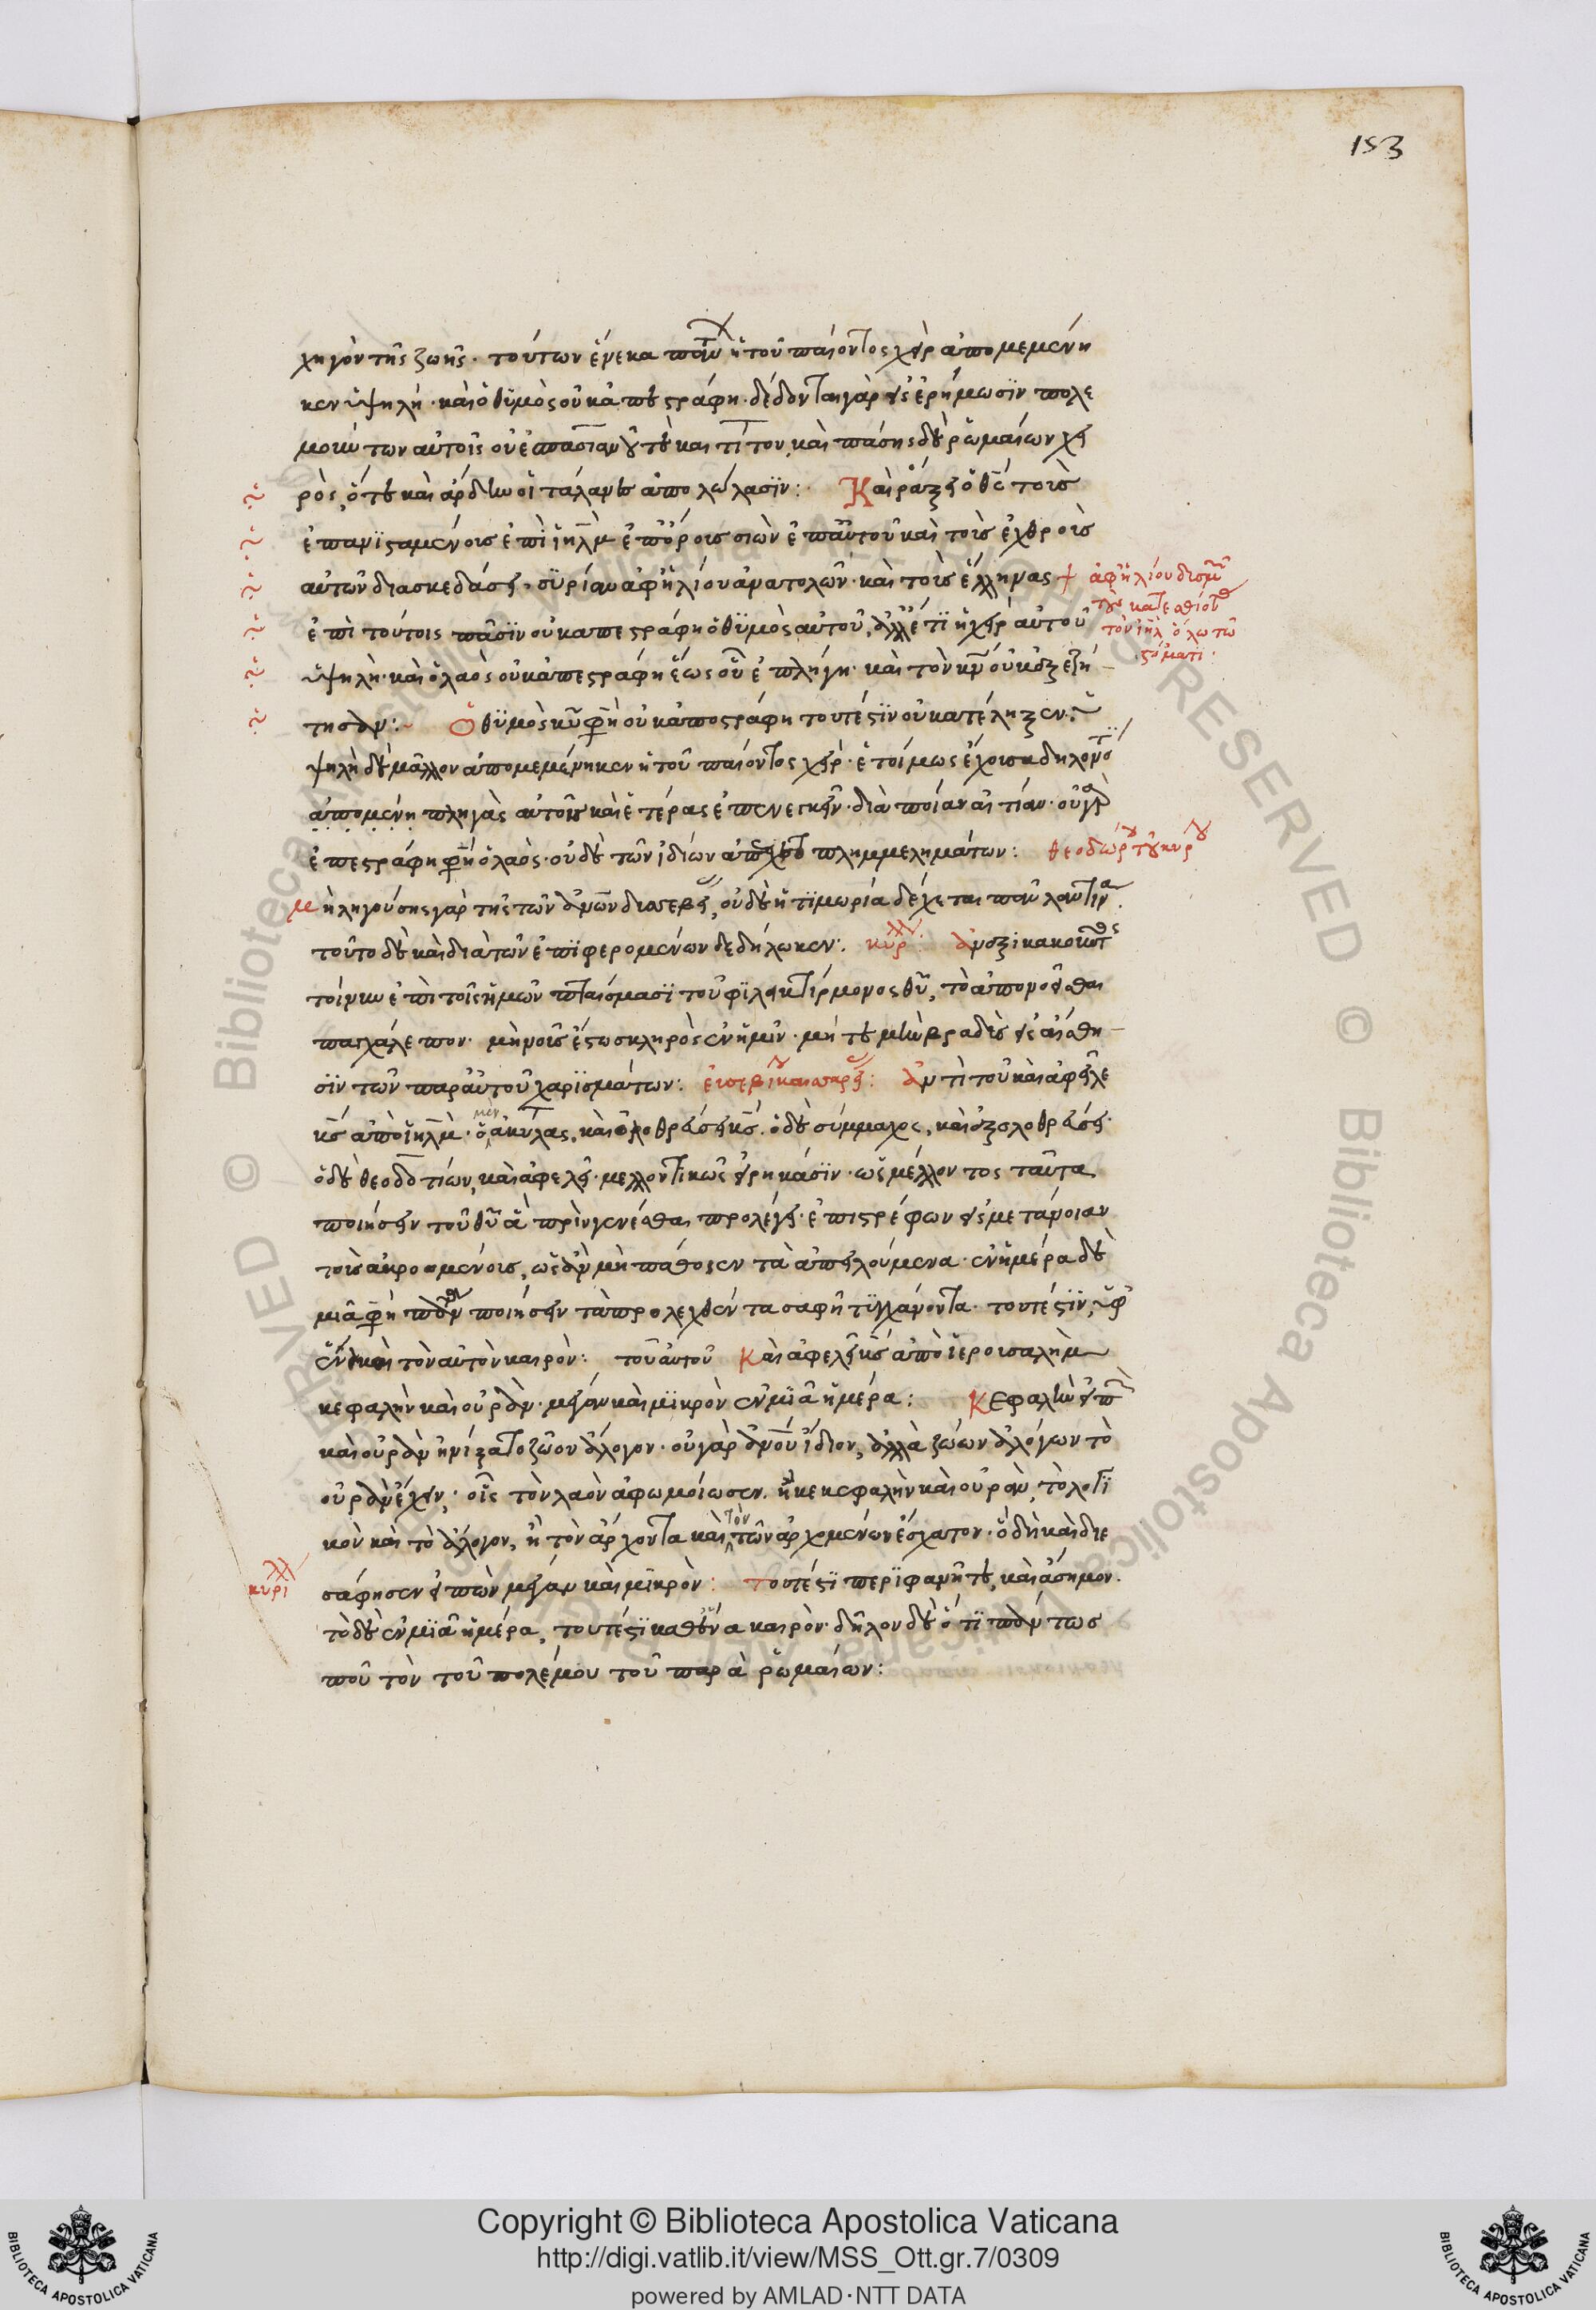 153
χηγὸν τῆς ζωῆς· τούτων ἕνεκα πάλιν ἡ τοῦ παίοντος χεὶρ ἀπομεμένη
κεν ὑψηλή· καὶ ὁ θυμὸς οὐκ ἀπεστράφη· δέδονται γὰρ εἰς ἐρήμωσιν πολε
μούντων αὐτοῖς οὐεσπασιανοῦ τὲ καὶ τίτου, καὶ πάσης δὲ ῥωμαίων χει
ρός, ὅτε καὶ ἄρδην οἱ τάλανες ἀπολώλασιν: Καὶ ράξει ὁ θς τοὺς
ἐπανισταμένους ἐπὶ ιηλμ ἐπ' ὄρους σιὼν ἐπ' αὐτοῦ καὶ τοὺς ἐχθροὺς
αὐτῶν διασκεδάσει· συρίαν ἀφ' ἡλίου ἀνατολῶν· καὶ τοὺς ἕλληνας + ἀφ' ἡλίου δυσμῶν
τοὺς κατεσθίοντας
ἐπὶ τούτοις πᾶσιν οὐκ ἀπεστράφη ὁ θυμὸς αὐτοῦ, ἀλλ' ἔτι ἡ χεὶρ αὐτοῦ
τὸν ιηλ ὅλω τῶ
στόματι·
ὑψηλὴ· καὶ ὁ λαὸς οὐκ ἀπεστράφη ἕως οὗ ἐπλήγη· καὶ τὸν κν οὐκ ἐξεζή
τησαν: Ὁ θυμὸς κυ φησὶν οὐκ ἀπεστράφη τουτέστιν οὐ κατέληξεν· ὑ
ψηλὴ δὲ μᾶλλον ἀπομεμένηκεν ἡ τοῦ παίοντος χείρ· ἑτοίμως ἔχουσα δηλονότι
ἀπομένη πληγὰς αὐτοῖς καὶ ἑτέρας ἐπενεγκεῖν· διὰ ποίαν αἰτίαν· οὐ γὰρ
ἐπεστράφη φησὶν ὁ λαὸς· οὐδὲ τῶν ἰδίων ἀπέσχετο πλημμελημάτων: θεοδωρήτου κύρου
μὴ ληγούσης γὰρ τῆς τῶν ἀνων δυσσεβείας, οὐδὲ ἡ τιμωρία δέχεται παῦλαν τινα.
τοῦτο δὲ καὶ διὰ τῶν ἐπιφερομένων δεδήλωκεν: κυρίλλου: ἀνεξικακοῦντος
τοίνυν ἐπὶ τοῖς ἡμῶν πταίσμασι τοῦ φιλοικτίρμονος θυ, τὸ ἀπονοεῖσθαι
παγχάλεπον· μὴ νοῦς ἔστω σκληρὸς ἐν ἡμῖν· μή τε μὴν βραδὺς εἰς αἴσθη
σιν τῶν παρ' αὐτοῦ χαρισμάτων: εὐσεβίου καισαρείας: ἀντὶ τοῦ καὶ ἀφεῖλε
κς ἀπὸ ιηλμ· ὁ μὲν ἀκύλας, καὶ ὀλοθρεύσει κς· ὁ δὲ σύμμαχος, καὶ ἐξολοθρεύσει·
ὁ δὲ θεοδοτίων, καὶ ἀφελεῖ· μελλοντικῶς εἰρηκάσιν· ὡς μέλλοντος ταῦτα
ποιήσειν τοῦ θυ ἃ πρὶν γενέσθαι προλέγει· ἐπιστρέφων εἰς μετάνοιαν
τοὺς ἀκροωμένους, ὡς ἂν μὴ πάθοιεν τὰ ἀπειλούμενα· ἐν ἡμέρα δὲ
μιᾶ φησὶ πάντα ποιήσειν τὰ προλεχθέντα σαφῆ τυγχάνοντα· τουτέστιν, ὑφ'
ἕνα καὶ τὸν αὐτὸν καιρόν: τοῦ αὐτοῦ Καὶ ἀφελεῖ κς ἀπὸ ἱερουσαλὴμ
κεφαλὴν καὶ οὐρὰν· μέγαν καὶ μικρὸν ἐν μιᾶ ἡμέρα: Κεφαλὴν εἰπὼν
καὶ οὐρὰν ἠνίξατο ζῶον ἄλογον· οὐ γὰρ ἀνου ἴδιον, ἀλλὰ ζώων ἀλόγων τὸ
οὐρὰν ἔχειν· οἷς τὸν λαὸν ἀφωμοίωσεν. ἢ κε κεφαλὴν καὶ οὐρὰν, τὸ λογι
κὸν καὶ τὸ ἄλογον, ἢ τὸν ἄρχοντα καὶ τὸν τῶν ἀρχομένων ἔσχατον· ὃ δὴ καὶ διε
κυρίλλου
σάφησεν εἰπὼν μέγαν καὶ μικρὸν: τουτέστι περιφανῆ τὲ, καὶ ἄσημον.
τὸ δὲ ἐν μιᾶ ἡμέρα, τουτέστι καθ' ἕνα καιρὸν· δῆλον δὲ ὅτι πάντως
που τὸν τοῦ πολέμου τοῦ παρὰ ῥωμαίων:
Copyright © Biblioteca Apostolica Vaticana
http://digi.vatlib.it/view/MSS_Ott.gr.7/0309
powered by AMLAD·NTT DATA
BIBLIOTECA APOSTOLICA VATICANA
BIBLIOTECA APOSTOLICA VATICANA